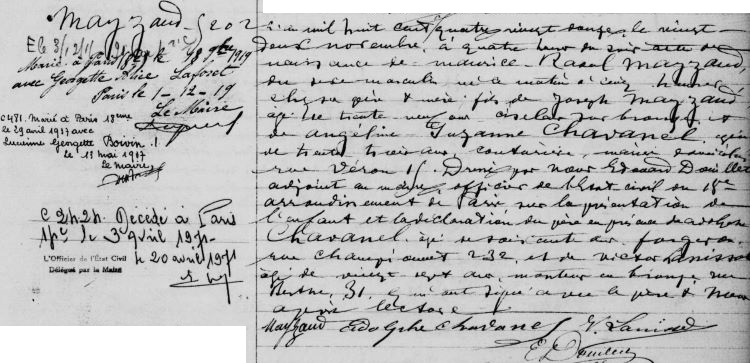 Mayzaud
5202
EC 3/12/19
Marié à Paris
9bre 1919
avec Georgette Alice Laforet
Paris le 1-12-19
Le Maire
C 481. Marié à Paris 18eme
le 29 avril 1937 avec
Lucienne Georgette Boivin.
Le 11 mai 1937
Le maire
C 2424 Décédé à Paris
le 3 avril 1971
le 20 avril 1971
L'Officier de l'État Civil
Délégué par le Maire
mil huit cent quatre vingt douze, le vingt
deux novembre, à quatre heures du soir acte de
naissance de Maurice Raoul Mayzaud,
du sexe masculin, né ce matin à cinq heures
chez ses père & mère, fils de Joseph Mayzaud
âgé de trente neuf ans ciseleur sur bronze, et
de Angéline Suzanne Chavanel, âgée
de trente trois ans, couturière, mariés, domiciliés
rue Véron 15. Dressé par nous Edouard Douillet
adjoint au maire, officier de l'Etat civil du 18e
arrondissement de Paris sur la présentation de
l'enfant et la déclaration du père en présence de Adolphe
Chavanel, âgé de soixante ans, forgeron,
rue Championnet 232, et de Victor Lanisson
âgé de vingt sept ans, monteur en bronze, rue
Berthe, 31, qui ont signé avec le père & nous
après lecture
Mayzaud Adolphe Chavanel